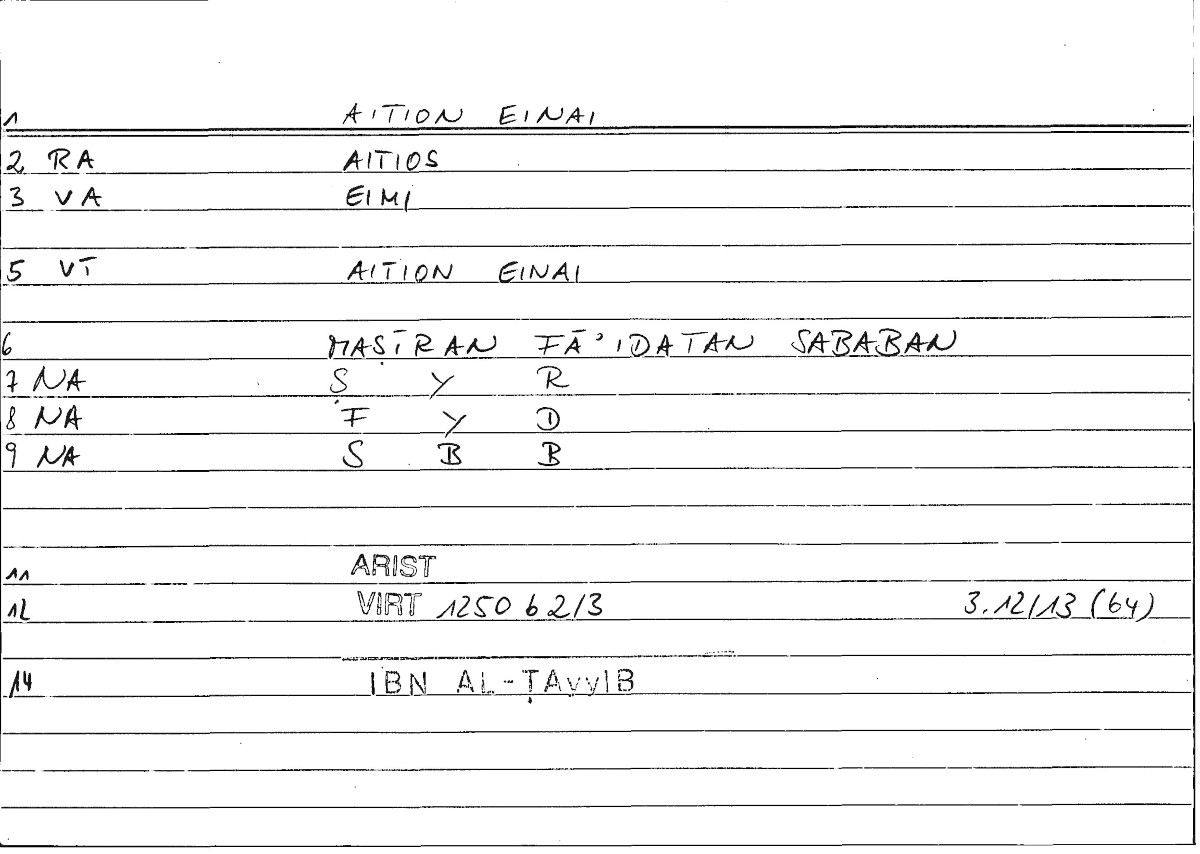 1 AITION EINAI
2 RA AITIOS
3 VA EIMI
5 VT AITION EINAI
6 MAṢĪRAN FĀ'IDATAN SABABAN
7 NA Ṣ Y R
8 NA F Y D
9 NA S B B
11 ARIST
12 VIRT 1250 b 2/3 3.12/13 (64)
14 IBN AL-ṬAyyIB